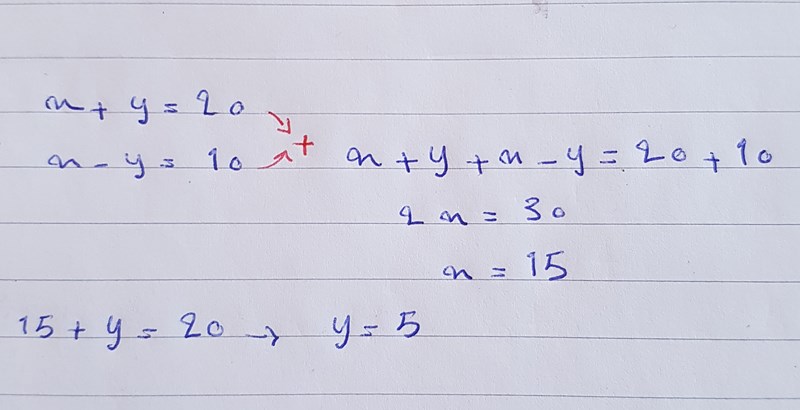 x + y = 20
x - y = 10
+
x + y + x - y = 20 + 10
2x = 30
x = 15
15 + y = 20 → y = 5